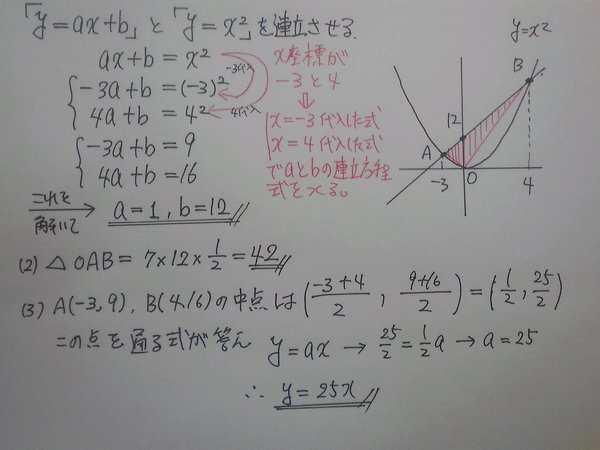 「y=ax+b」と「y=x²」を連立させる.
ax+b=x²
-3a+b=(-3)²
4a+b=4²
-3a+b=9
4a+b=16
これを解いて → a=1, b=12
-3代入
4代入
x座標が
-3と4
⇓
x=-3代入した式
x=4代入した式
でaとbの連立方程
式をつくる。
y=x²
B
12
A
-3
O
4
(2) △OAB=7×12×1/2=42
(3) A(-3,9), B(4,16)の中点は(-3+4/2, 9+16/2)=(1/2, 25/2)
この点を通る式が答え y=ax → 25/2=1/2a → a=25
∴ y=25x